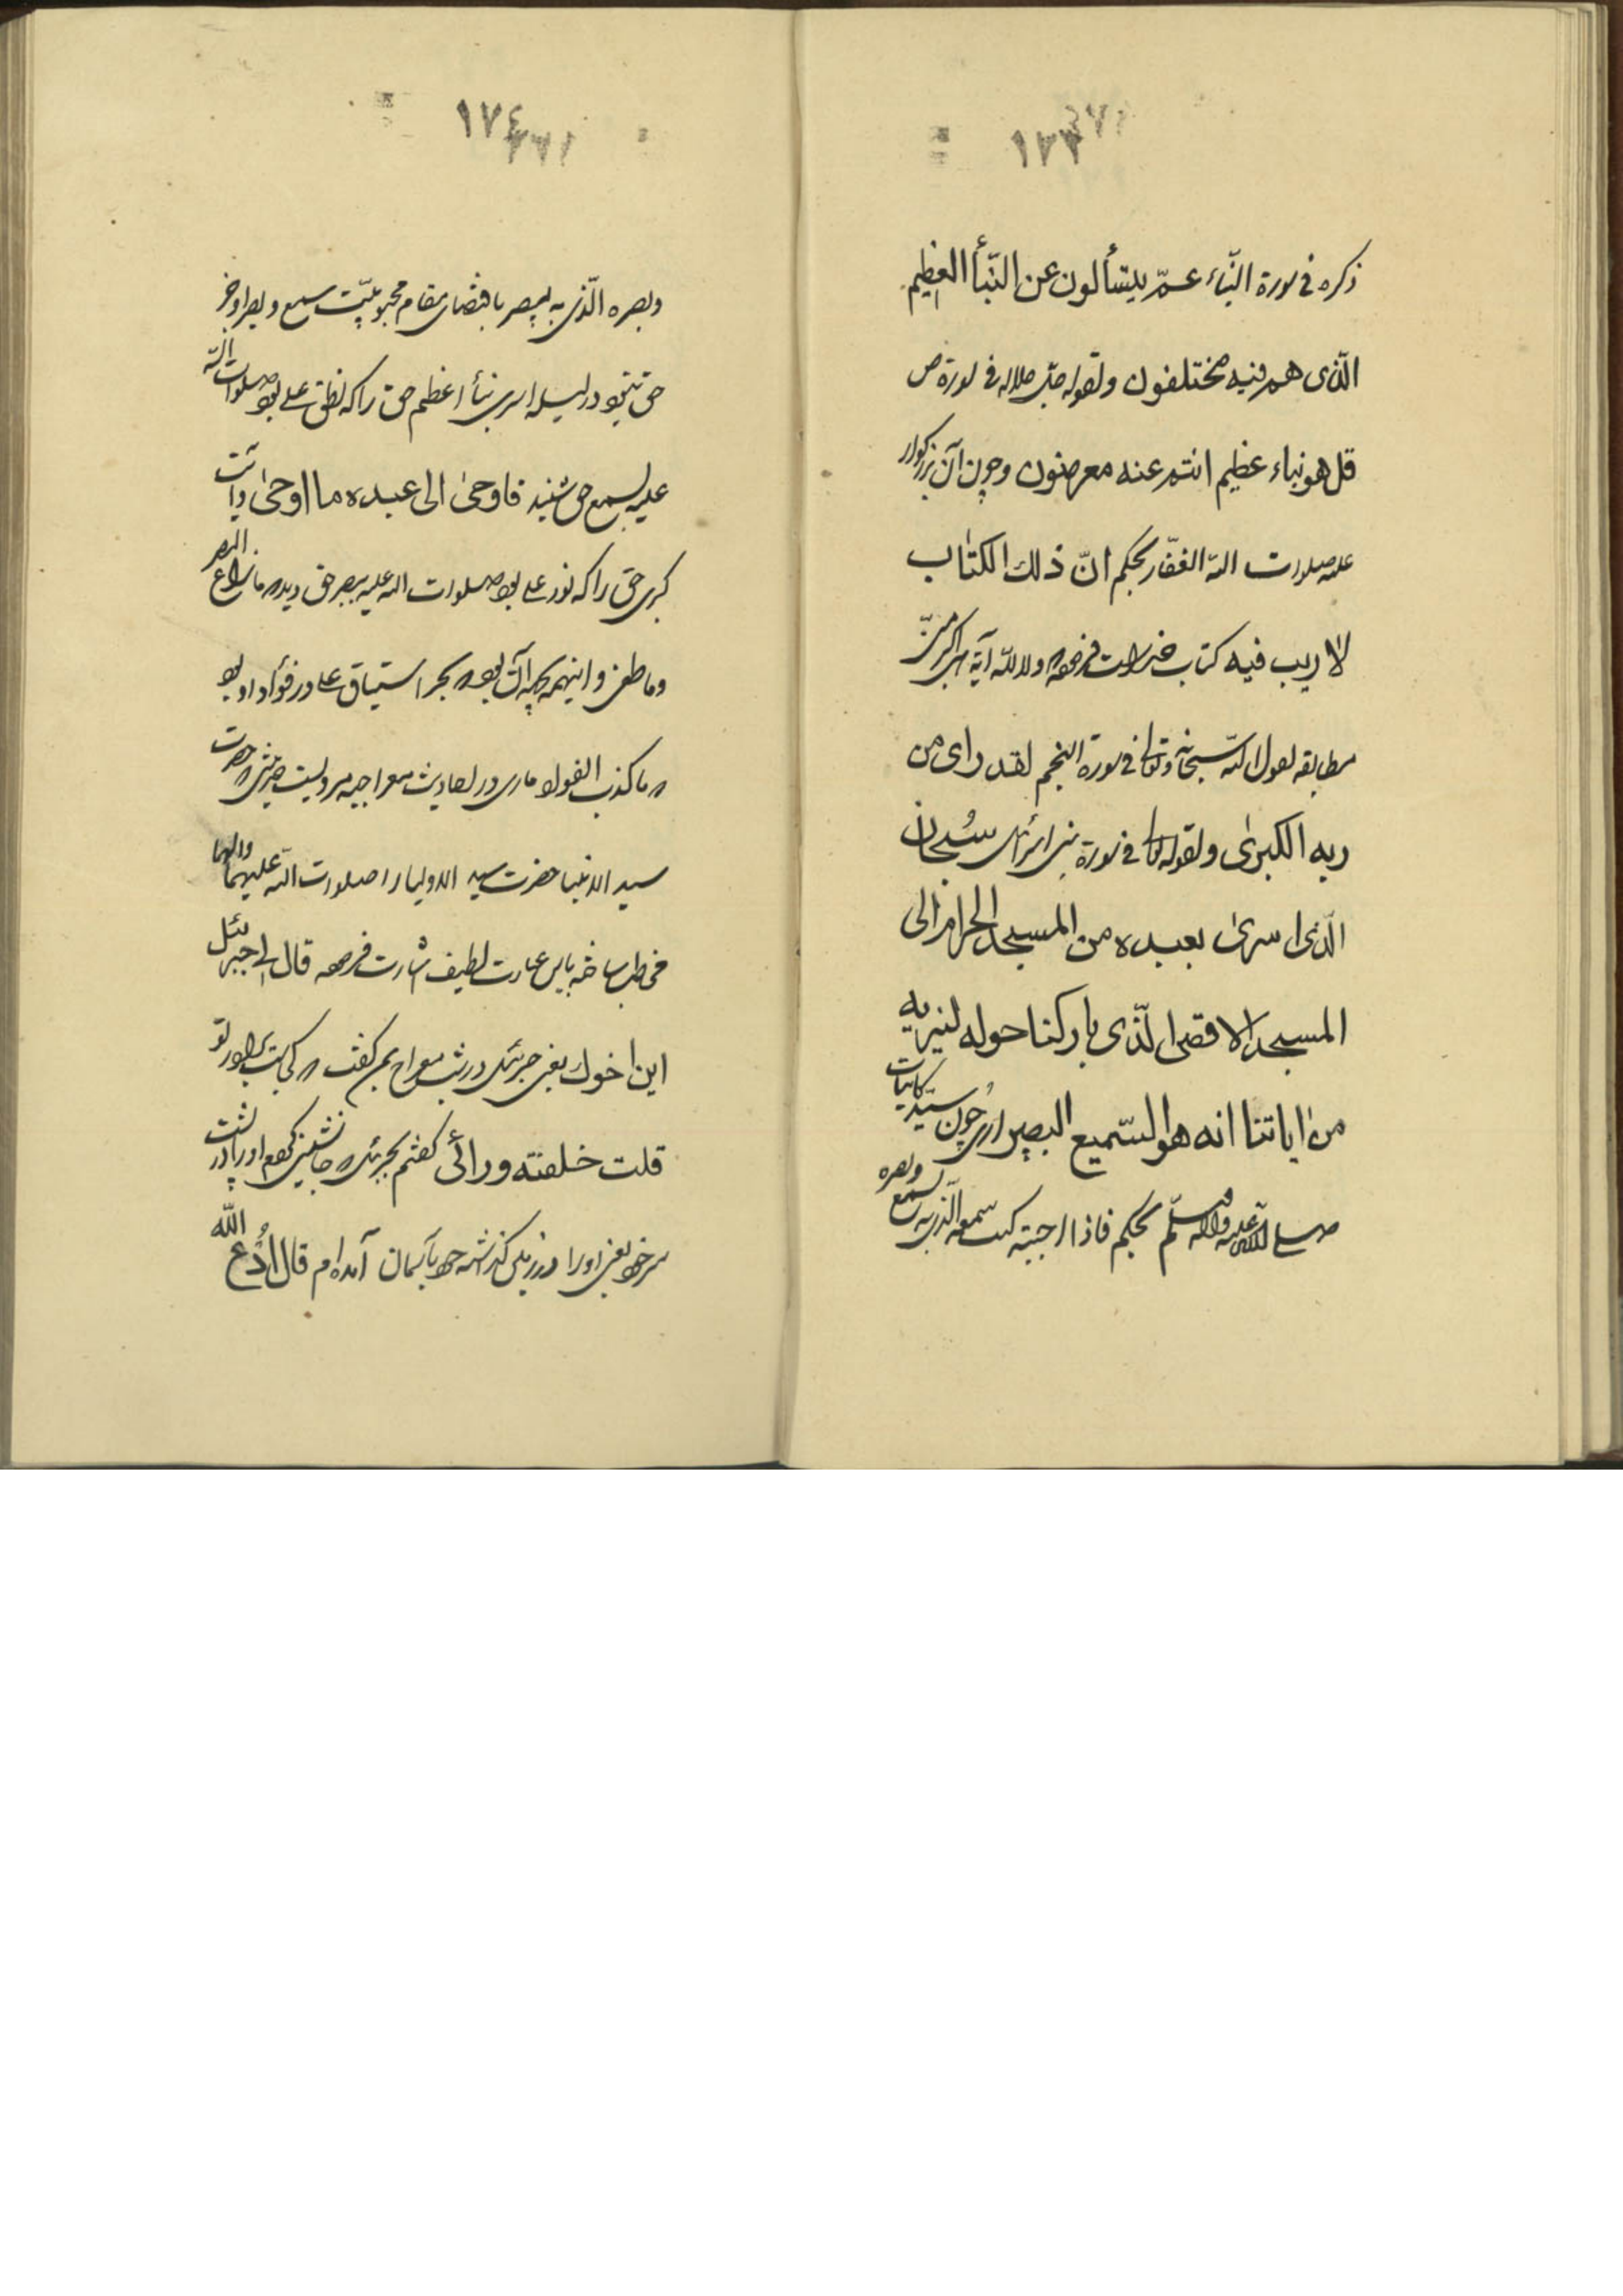 ١٧٣
ذكره فى سورة النّباء عمّ يتسألون عن النّبأ العظيم
الّذى هم فيه مختلفون ولقوله جلّ جلاله فى سورة ص
قل هو نباء عظيم انتم عنه معرضون وچون آن بزرگوار
عليه صلوات الله الغفّار بحكم انّ ذلك الكتاب
لا ريب فيه كتاب آية
مطابقه لقول الله سبحانه وتعالى فى سورة النجم لقد راى من
ربه الكبرى ولقوله تعالى فى سورة بنى اسرائيل سُبحان
الّذى اسرى بعبده من المسجد الحرام الى
المسجد الاقصى الّذى باركنا حوله لنريه
من اياتنا انه هو السّميع البصير ازيرا چون سيّد كاينات
صلى الله عليه واله وسلّم بحكم فاذا احببته كنت سمعه الّذى به يسمع وبصره
١٧٤
وبصره الّذى به يبصر باقتضاى مقام محبوبيّت سمع وبصر او جز
حق نبود در ليلة اسرى نبأ اعظم حق را كه نطق على بود صلوات الله
عليه بسمع حق شنيد فاوحى الى عبده ما اوحى وآيت
كبرى حق را كه نور على بود صلوات الله عليه ببصر حق ديد ما زاغ البصر
وما طغى واينهمه آن بود اشتياق على در فؤاد او بود
ما كذب الفؤاد ما راى در احاديث معراجيه مرويست حضرت
سيد الانبيا حضرت سيد الاوليا را صلوات الله عليهما وآلهما
مخاطب ساخته باين عبارت لطيف اشارت فرموده قال لى جبرئيل
اين اخوك يعنى جبرئيل در شب معراج بمن گفت كجاست برادر تو
قلت خلفته ورائى گفتم بجبرئيل جانشين كردم اورا در پشت
سر خود يعنى اورا در زمين گذاشته خود بآسمان آمده‌ام قال ادُع الله